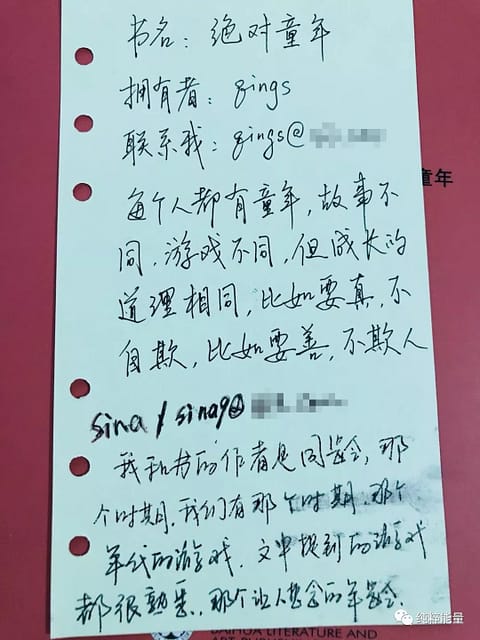 书名：绝对童年
拥有者：gings
联系我：gings@
童年
每个人都有童年，故事不
同，游戏不同，但成长的
道理相同，比如要真，不
自欺，比如要善，不欺人
sina / sina9@
我和书的作者是同龄，那
个时期，我们有那个时期、那个
年代的游戏．文中提到的游戏
都很熟悉，那个让人怀念的年龄．
纯熵能量
BAIHUA LITERATURE AND